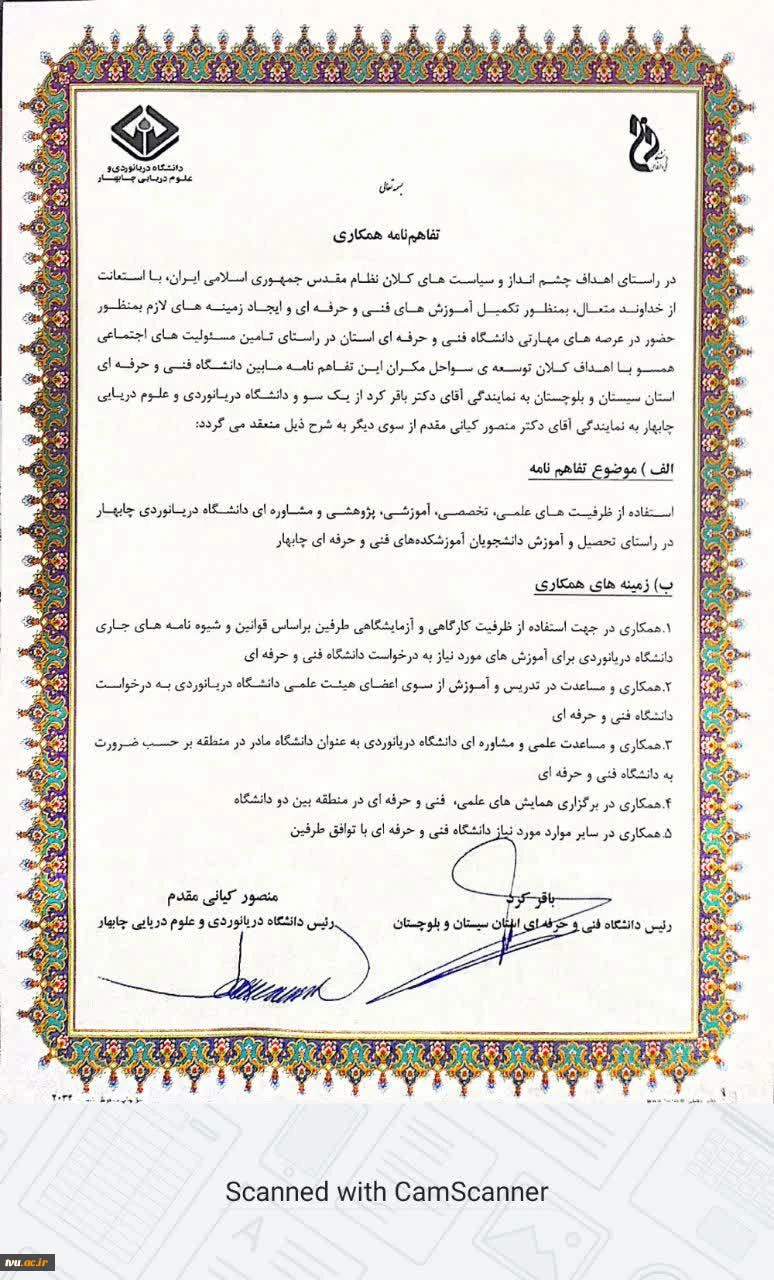 دانشگاه دریانوردی و
علوم دریایی چابهار
بسمه تعالی
تفاهم‌نامه همکاری
در راستای اهداف چشم انداز و سیاست های کلان نظام مقدس جمهوری اسلامی ایران، با استعانت
از خداوند متعال، بمنظور تکمیل آموزش های فنی و حرفه ای و ایجاد زمینه های لازم بمنظور
حضور در عرصه های مهارتی دانشگاه فنی و حرفه ای استان در راستای تامین مسئولیت های اجتماعی
همسو با اهداف کلان توسعه ی سواحل مکران این تفاهم نامه مابین دانشگاه فنی و حرفه ای
استان سیستان و بلوچستان به نمایندگی آقای دکتر باقر کرد از یک سو و دانشگاه دریانوردی و علوم دریایی
چابهار به نمایندگی آقای دکتر منصور کیانی مقدم از سوی دیگر به شرح ذیل منعقد می گردد:
الف ) موضوع تفاهم نامه
استفاده از ظرفیت های علمی، تخصصی، آموزشی، پژوهشی و مشاوره ای دانشگاه دریانوردی چابهار
در راستای تحصیل و آموزش دانشجویان آموزشکده‌های فنی و حرفه ای چابهار
ب) زمینه های همکاری
۱.همکاری در جهت استفاده از ظرفیت کارگاهی و آزمایشگاهی طرفین براساس قوانین و شیوه نامه های جاری
دانشگاه دریانوردی برای آموزش های مورد نیاز به درخواست دانشگاه فنی و حرفه ای
۲.همکاری و مساعدت در تدریس و آموزش از سوی اعضای هیئت علمی دانشگاه دریانوردی به درخواست
دانشگاه فنی و حرفه ای
۳.همکاری و مساعدت علمی و مشاوره ای دانشگاه دریانوردی به عنوان دانشگاه مادر در منطقه بر حسب ضرورت
به دانشگاه فنی و حرفه ای
۴.همکاری در برگزاری همایش های علمی، فنی و حرفه ای در منطقه بین دو دانشگاه
۵.همکاری در سایر موارد مورد نیاز دانشگاه فنی و حرفه ای با توافق طرفین
باقر کرد
رئیس دانشگاه فنی و حرفه ای استان سیستان و بلوچستان
منصور کیانی مقدم
رئیس دانشگاه دریانوردی و علوم دریایی چابهار
۲۰۳۴
Scanned with CamScanner
tvu.ac.ir